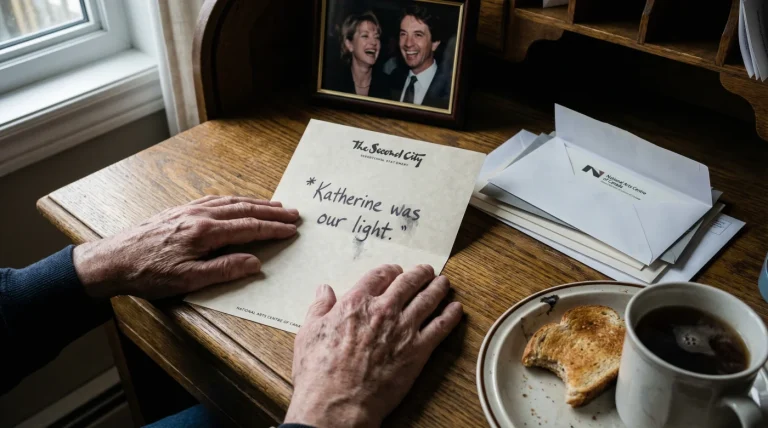 The Second City
*Katherine was
our light."
NATIONAL ARTS CENTRE OF CANA
N National Arts Centre